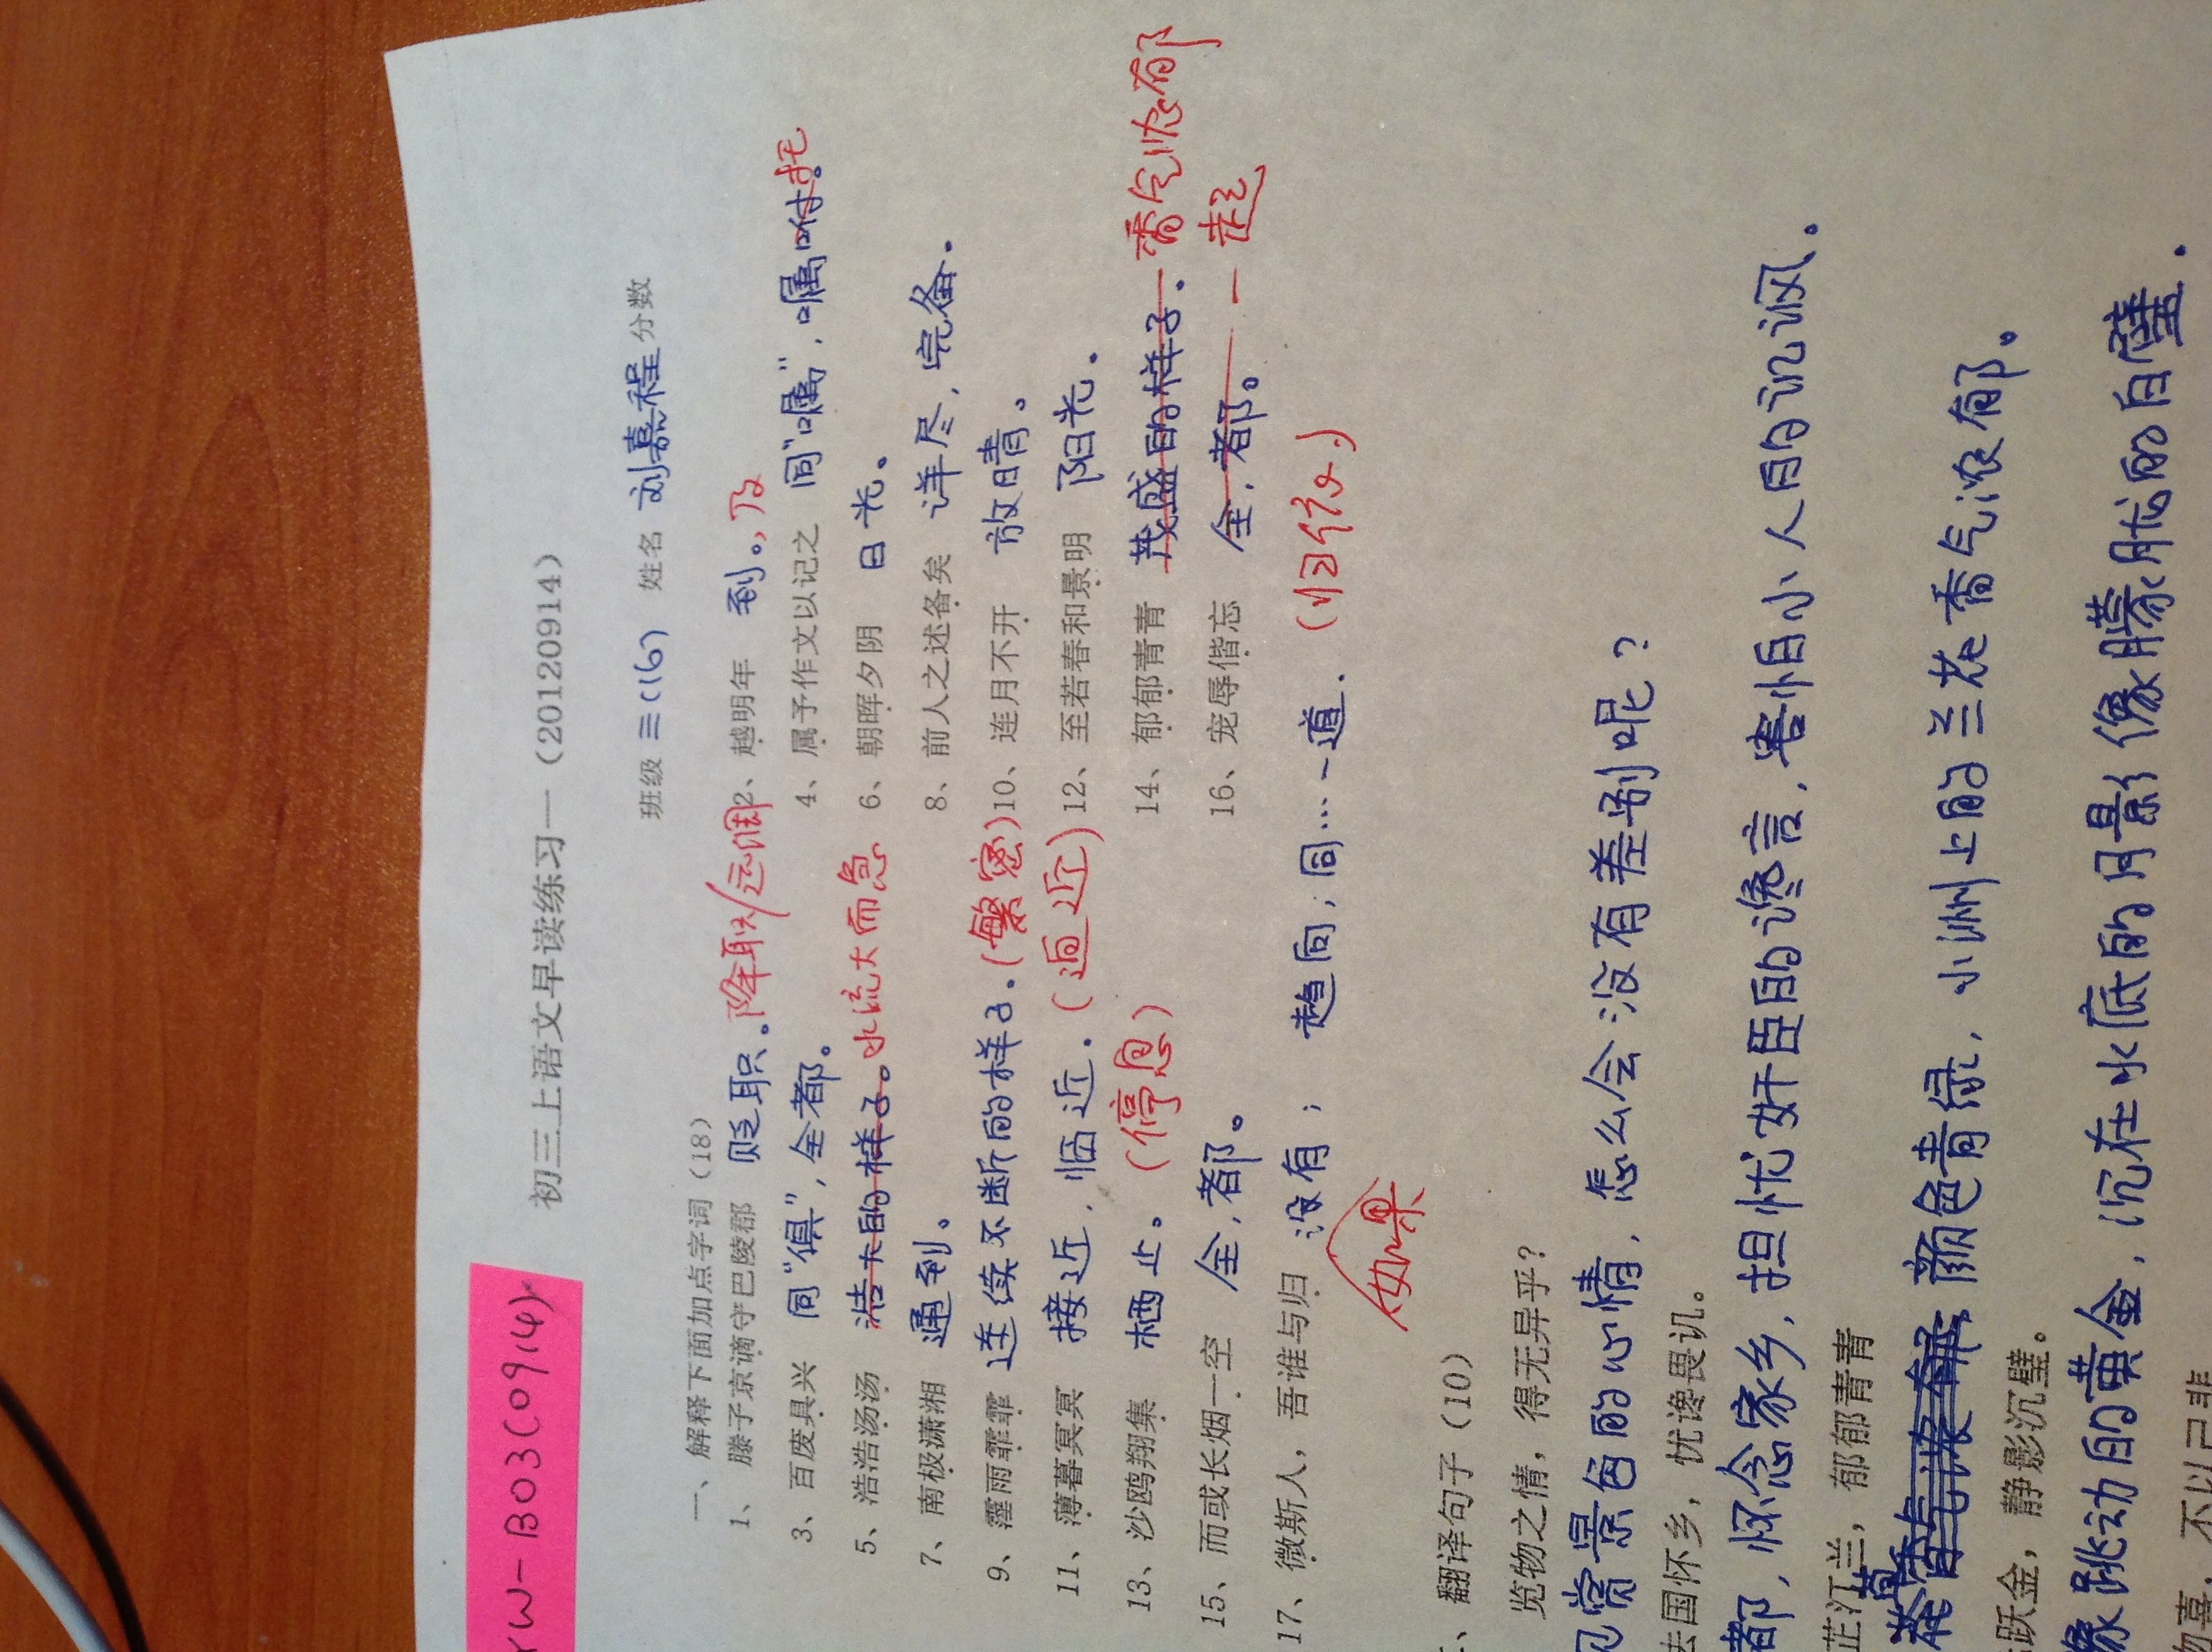 YW-B03(0914)
初三上语文早读练习一（20120914）
班级 三(16) 姓名 刘嘉程 分数
一、解释下面加点字词（18）
1、滕子京谪守巴陵郡 贬职。降职/远调 2、越明年 到。，及
3、百废具兴 同“俱”，全都。 4、属予作文以记之 同“嘱”，嘱咐。托
5、浩浩汤汤 浩大的样子。水流大而急 6、朝晖夕阴 日光。
7、南极潇湘 通到。 8、前人之述备矣 详尽，完备。
9、霪雨霏霏 连续不断的样子。(繁密) 10、连月不开 放晴。
11、薄暮冥冥 接近，临近.(迫近) 12、至若春和景明 阳光.
13、沙鸥翔集 栖止。(停息) 14、郁郁青青 茂盛的样子.香气浓郁
15、而或长烟一空 全，都。 16、宠辱偕忘 全，都。一起
17、微斯人，吾谁与归 没有； 趋向；同…一道.(归依.)
如果
、翻译句子（10）
览物之情，得无异乎？
赏景色的心情，怎么会没有差别呢？
去国怀乡，忧谗畏讥。
都，怀念家乡，担忧奸臣的谗言，害怕小人的讥讽。
芷汀兰，郁郁青青
草
花香气浓郁 颜色青绿，小洲上的兰花香气浓郁。
跃金，静影沉璧。
像跳动的黄金，沉在水底的月影像朦胧的白璧.
物喜，不以己悲